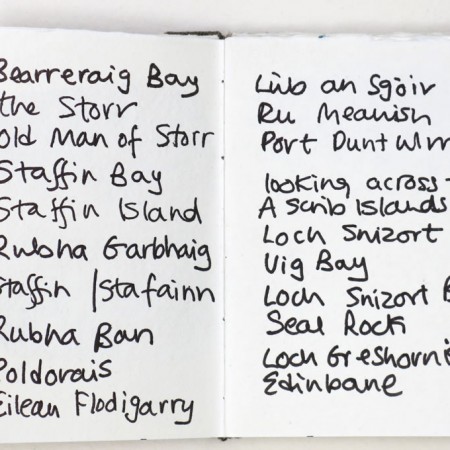 Bearreraig Bay
the Storr
Old Man of Storr
Staffin Bay
Staffin Island
Rubha Garbhaig
Staffin / Stafainn
Rubha Ban
Poldorais
Eilean Flodigarry
Lùb an Sgòir
Ru Meanish
Port
looking across
A scrib Islands
Loch Snizort
Uig Bay
Loch Snizort
Seal Rock
Loch Greshorni
Edinbane